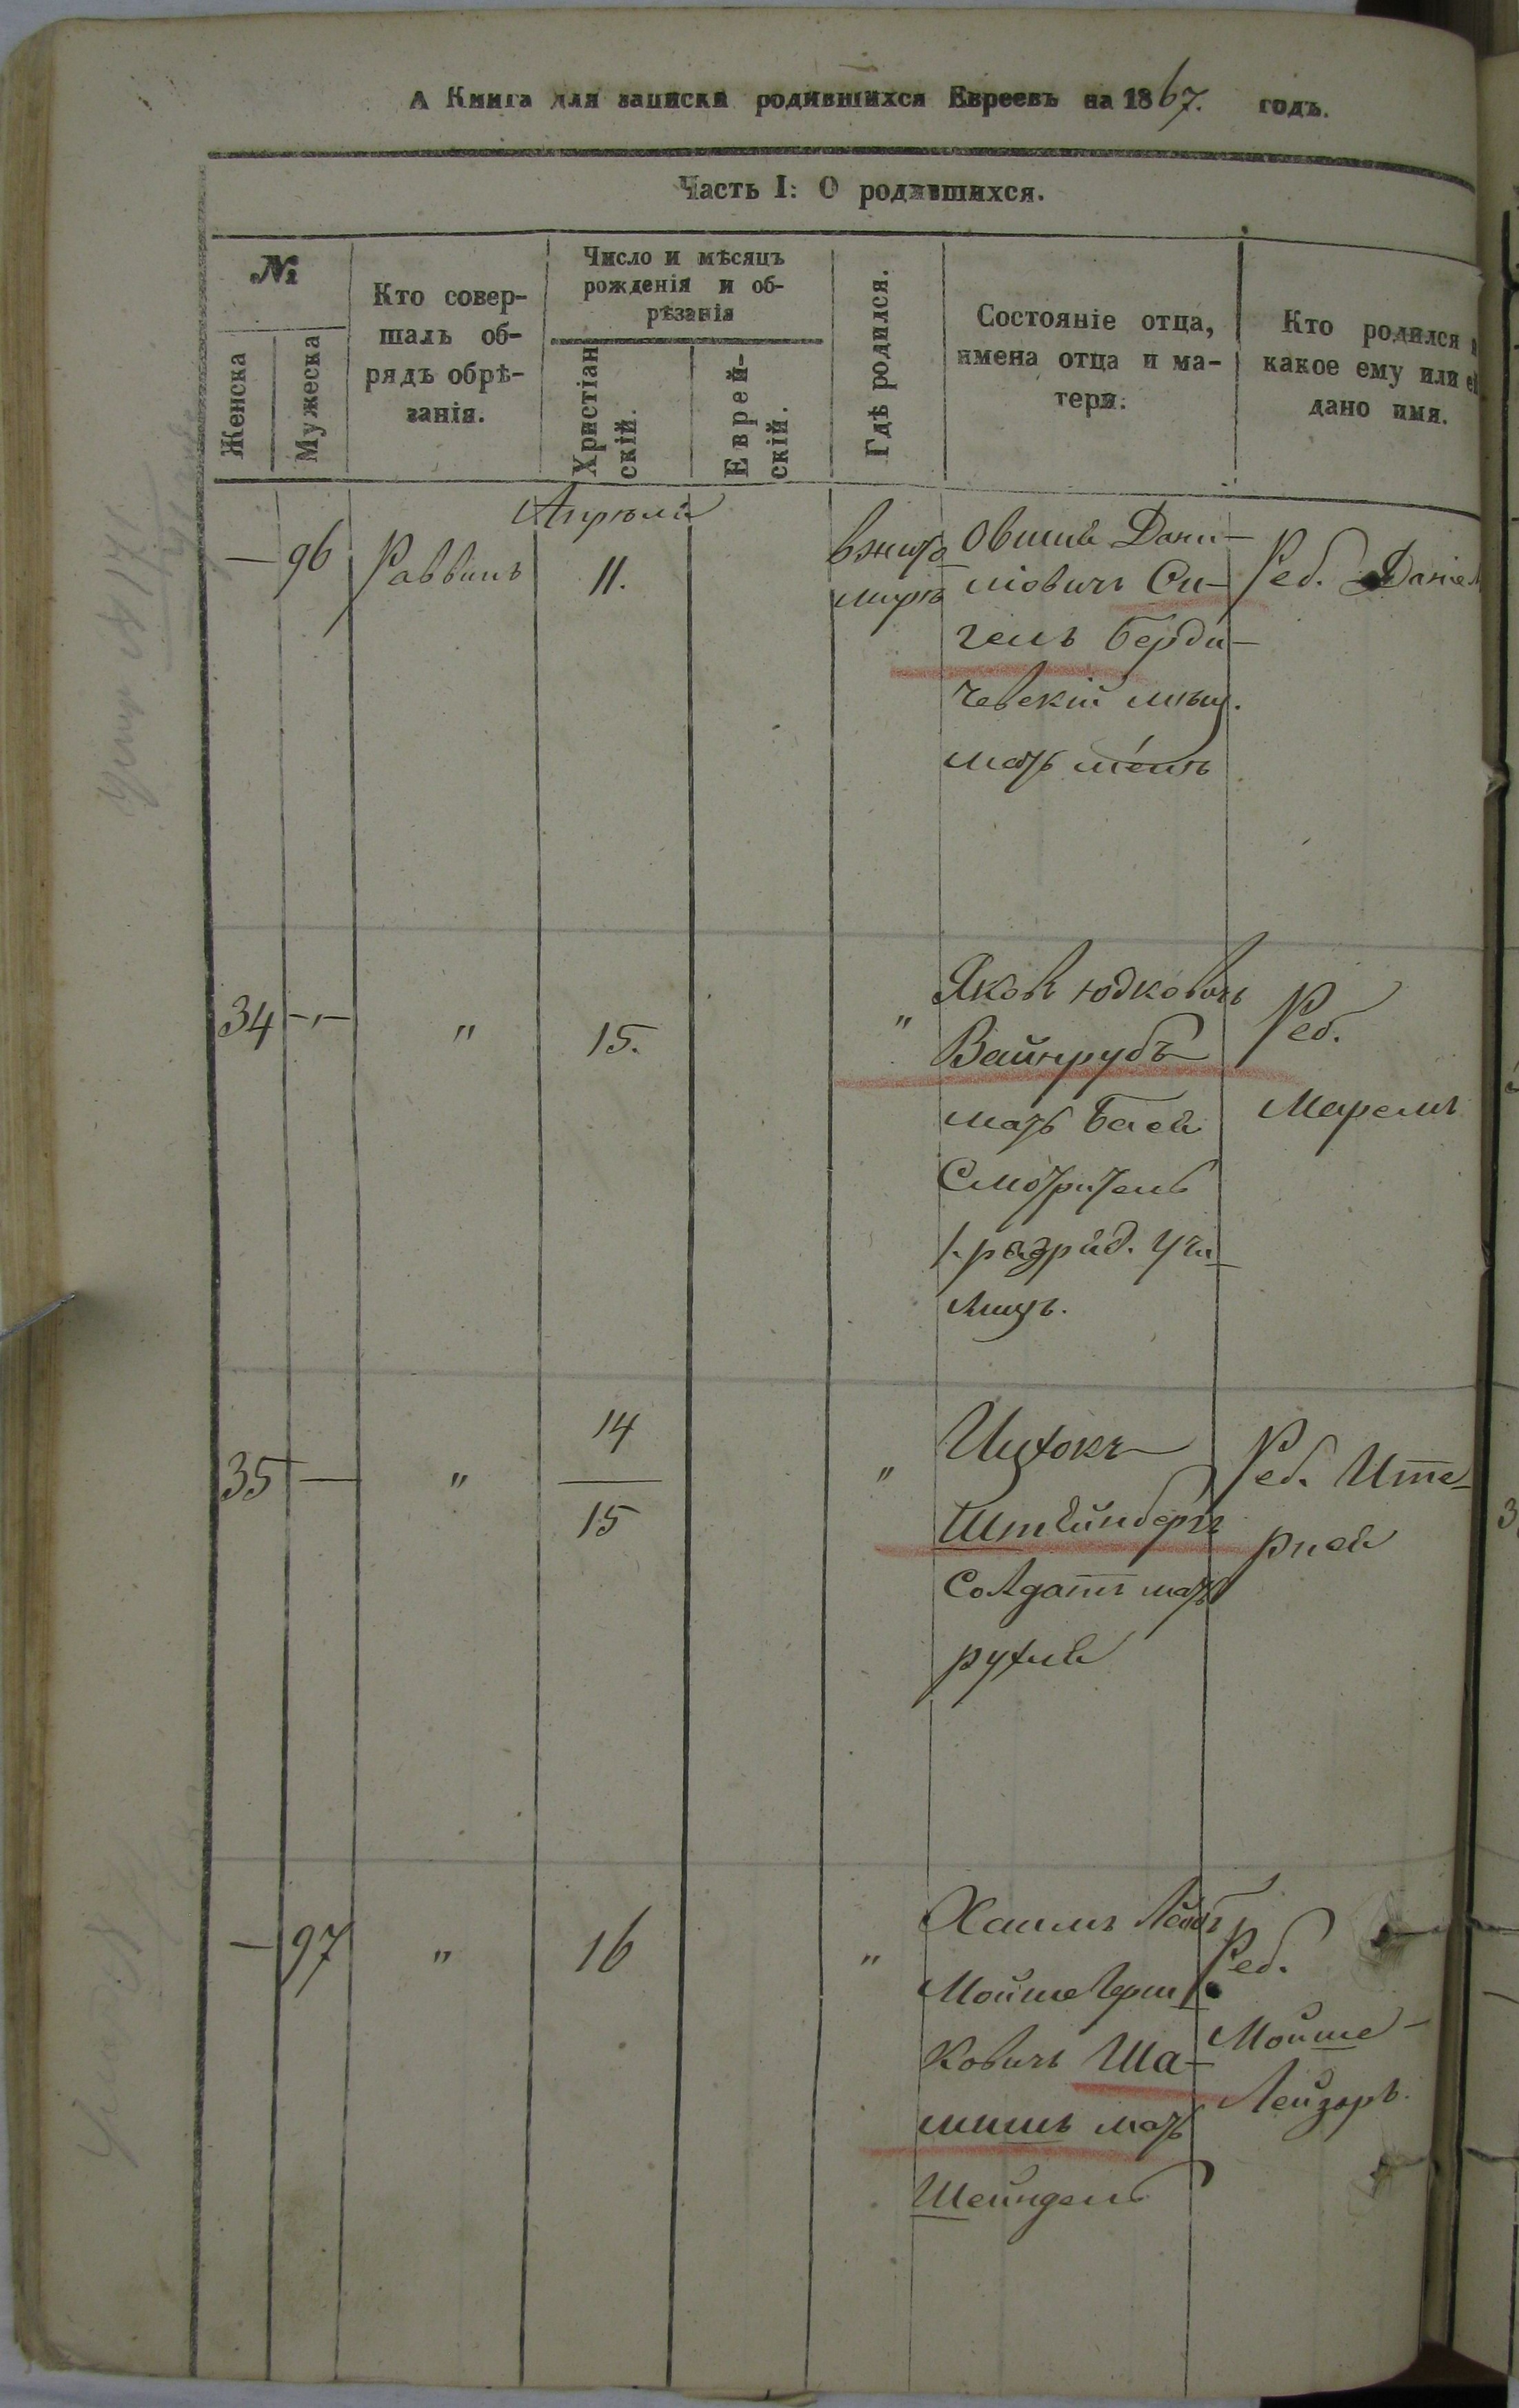 А Книга для записки родившихся Евреевъ на 1867. годъ.
Часть I: О родившихся.
№
Женска
Мужеска
Кто совер-
шалъ об-
рядъ обрѣ-
занія.
Число и мѣсяцъ
рожденія и об-
рѣзанія
Христіан
скій.
Еврей-
скій.
Гдѣ родился.
Состояніе отца,
имена отца и ма-
тери.
Кто родился и
какое ему или ей
дано имя.
Апрѣля
— 96
Раввинъ
11.
в жито
мирѣ
Овшій Дани-
ліовичъ Си-
гель Берди-
чевскій мѣщ.
мать
Реб. Даніел
34 -,-
"
15.
"
Яковъ Юдковичъ
Вайнрубъ
мать Бася
Смотритель
1. разряд. Учи-
лищъ.
Реб.
Маремъ
35 —
"
14
15
"
Ицхокъ
Штейнбергъ
Солдатъ мать
рухля
Реб. Ите-
рися
— 97
"
16
"
Хаимъ Лейбъ
Мошегерш-
ковичъ Ша-
мишъ мать
Шейндель
Реб.
Мойше-
Лейзоръ.